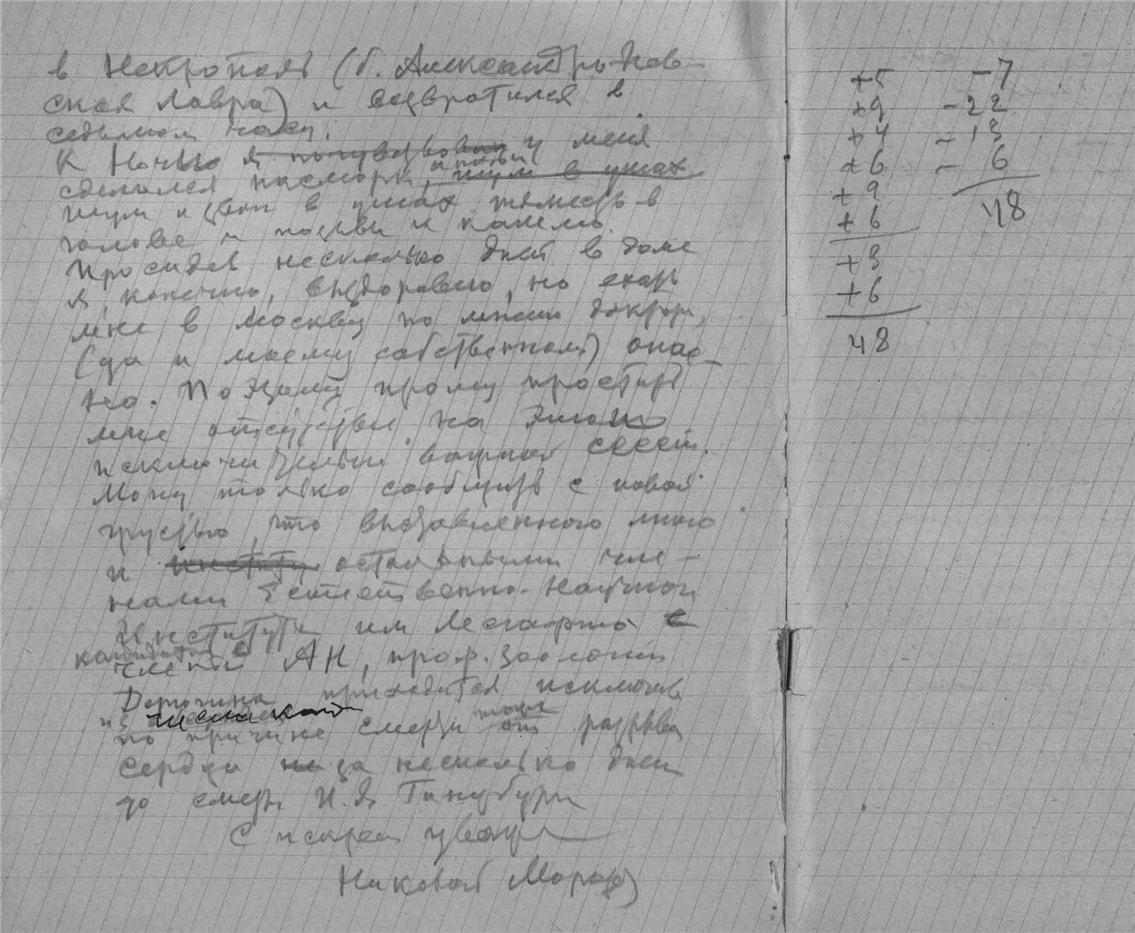 в Некрополь (б. Александро-Нев-
ская Лавра) и возвратился в
седьмом часу.
К ночью я почувствовал у меня
сделался насморк, шум в ушах
шум и звон в ушах тяжесть в
голове и кашель.
Просидев несколько дней в доме
я, конечно, выздоровею, но ехать
мне в Москву по мнению доктора,
(да и моему собственному) опас-
но. Поэтому прошу простить
мне отсутствие на этой
исключительно важной сессии.
Могу только сообщить с новой
грустью, что выставленного мною
и институ остальными чле-
нами Естественно-Научного
Института им Лесгафта с
кандидата в
члены АН, проф. зоологии
приходится исключить
из списка канд
по причине смерти тоже от разрыва
сердца не за несколько дней
до смерти И.Я. Гинцбурга
С искрен уваж
Николай Морозов
+5
+9
+4
+6
+9
+6
+3
+6
48
-7
-22
-13
- 6
48